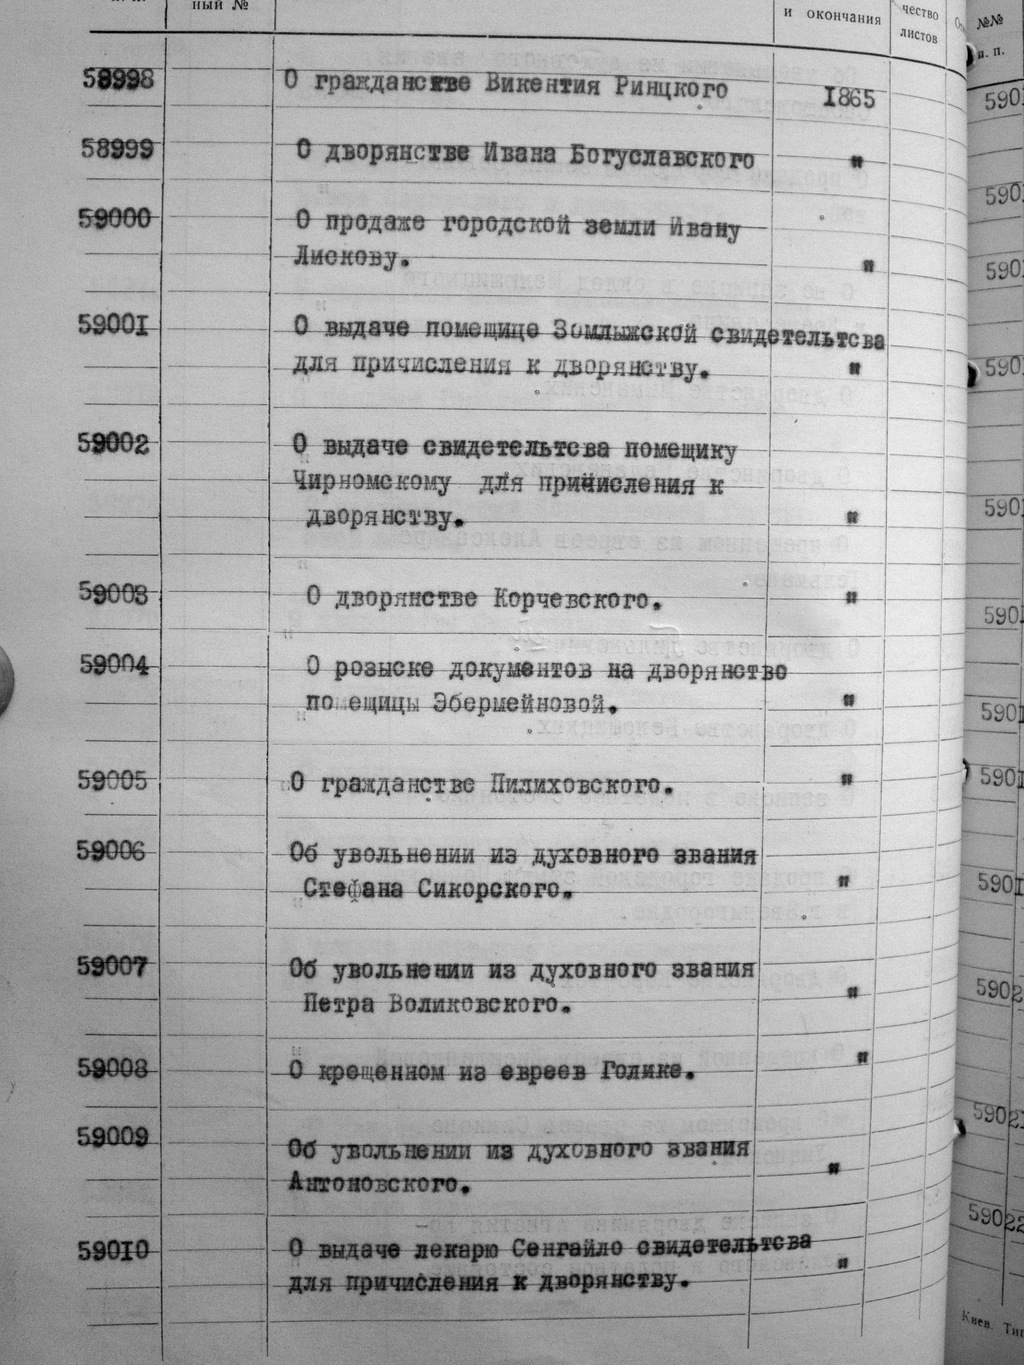 ный №
и окончания
чество
листов
№№
п. п.
58998 О гражданстве Викентия Ринцкого 1865
58999 О дворянстве Ивана Богуславского "
59000 О продаже городской земли Ивану
Лискову. "
59001 О выдаче помещице Зомлыжской свидетельтсва
для причисления к дворянству. "
59002 О выдаче свидетельтсва помещику
Чирномскому для причисления к
дворянству. "
59003 О дворянстве Корчевского. "
59004 О розыске документов на дворянство
по ещицы Эбермейновой. "
59005 О гражданстве Пилиховского. "
59006 Об увольнении из духовного звания
Стефана Сикорского. "
59007 Об увольнении из духовного звания
Петра Воликовского. "
59008 О крещенном из евреев Голике. "
59009 Об увольнении из духовного звания
Антоновского. "
59010 О выдаче лекарю Сенгайло свидетельтсва
для причисления к дворянству. "
Киев. Тип